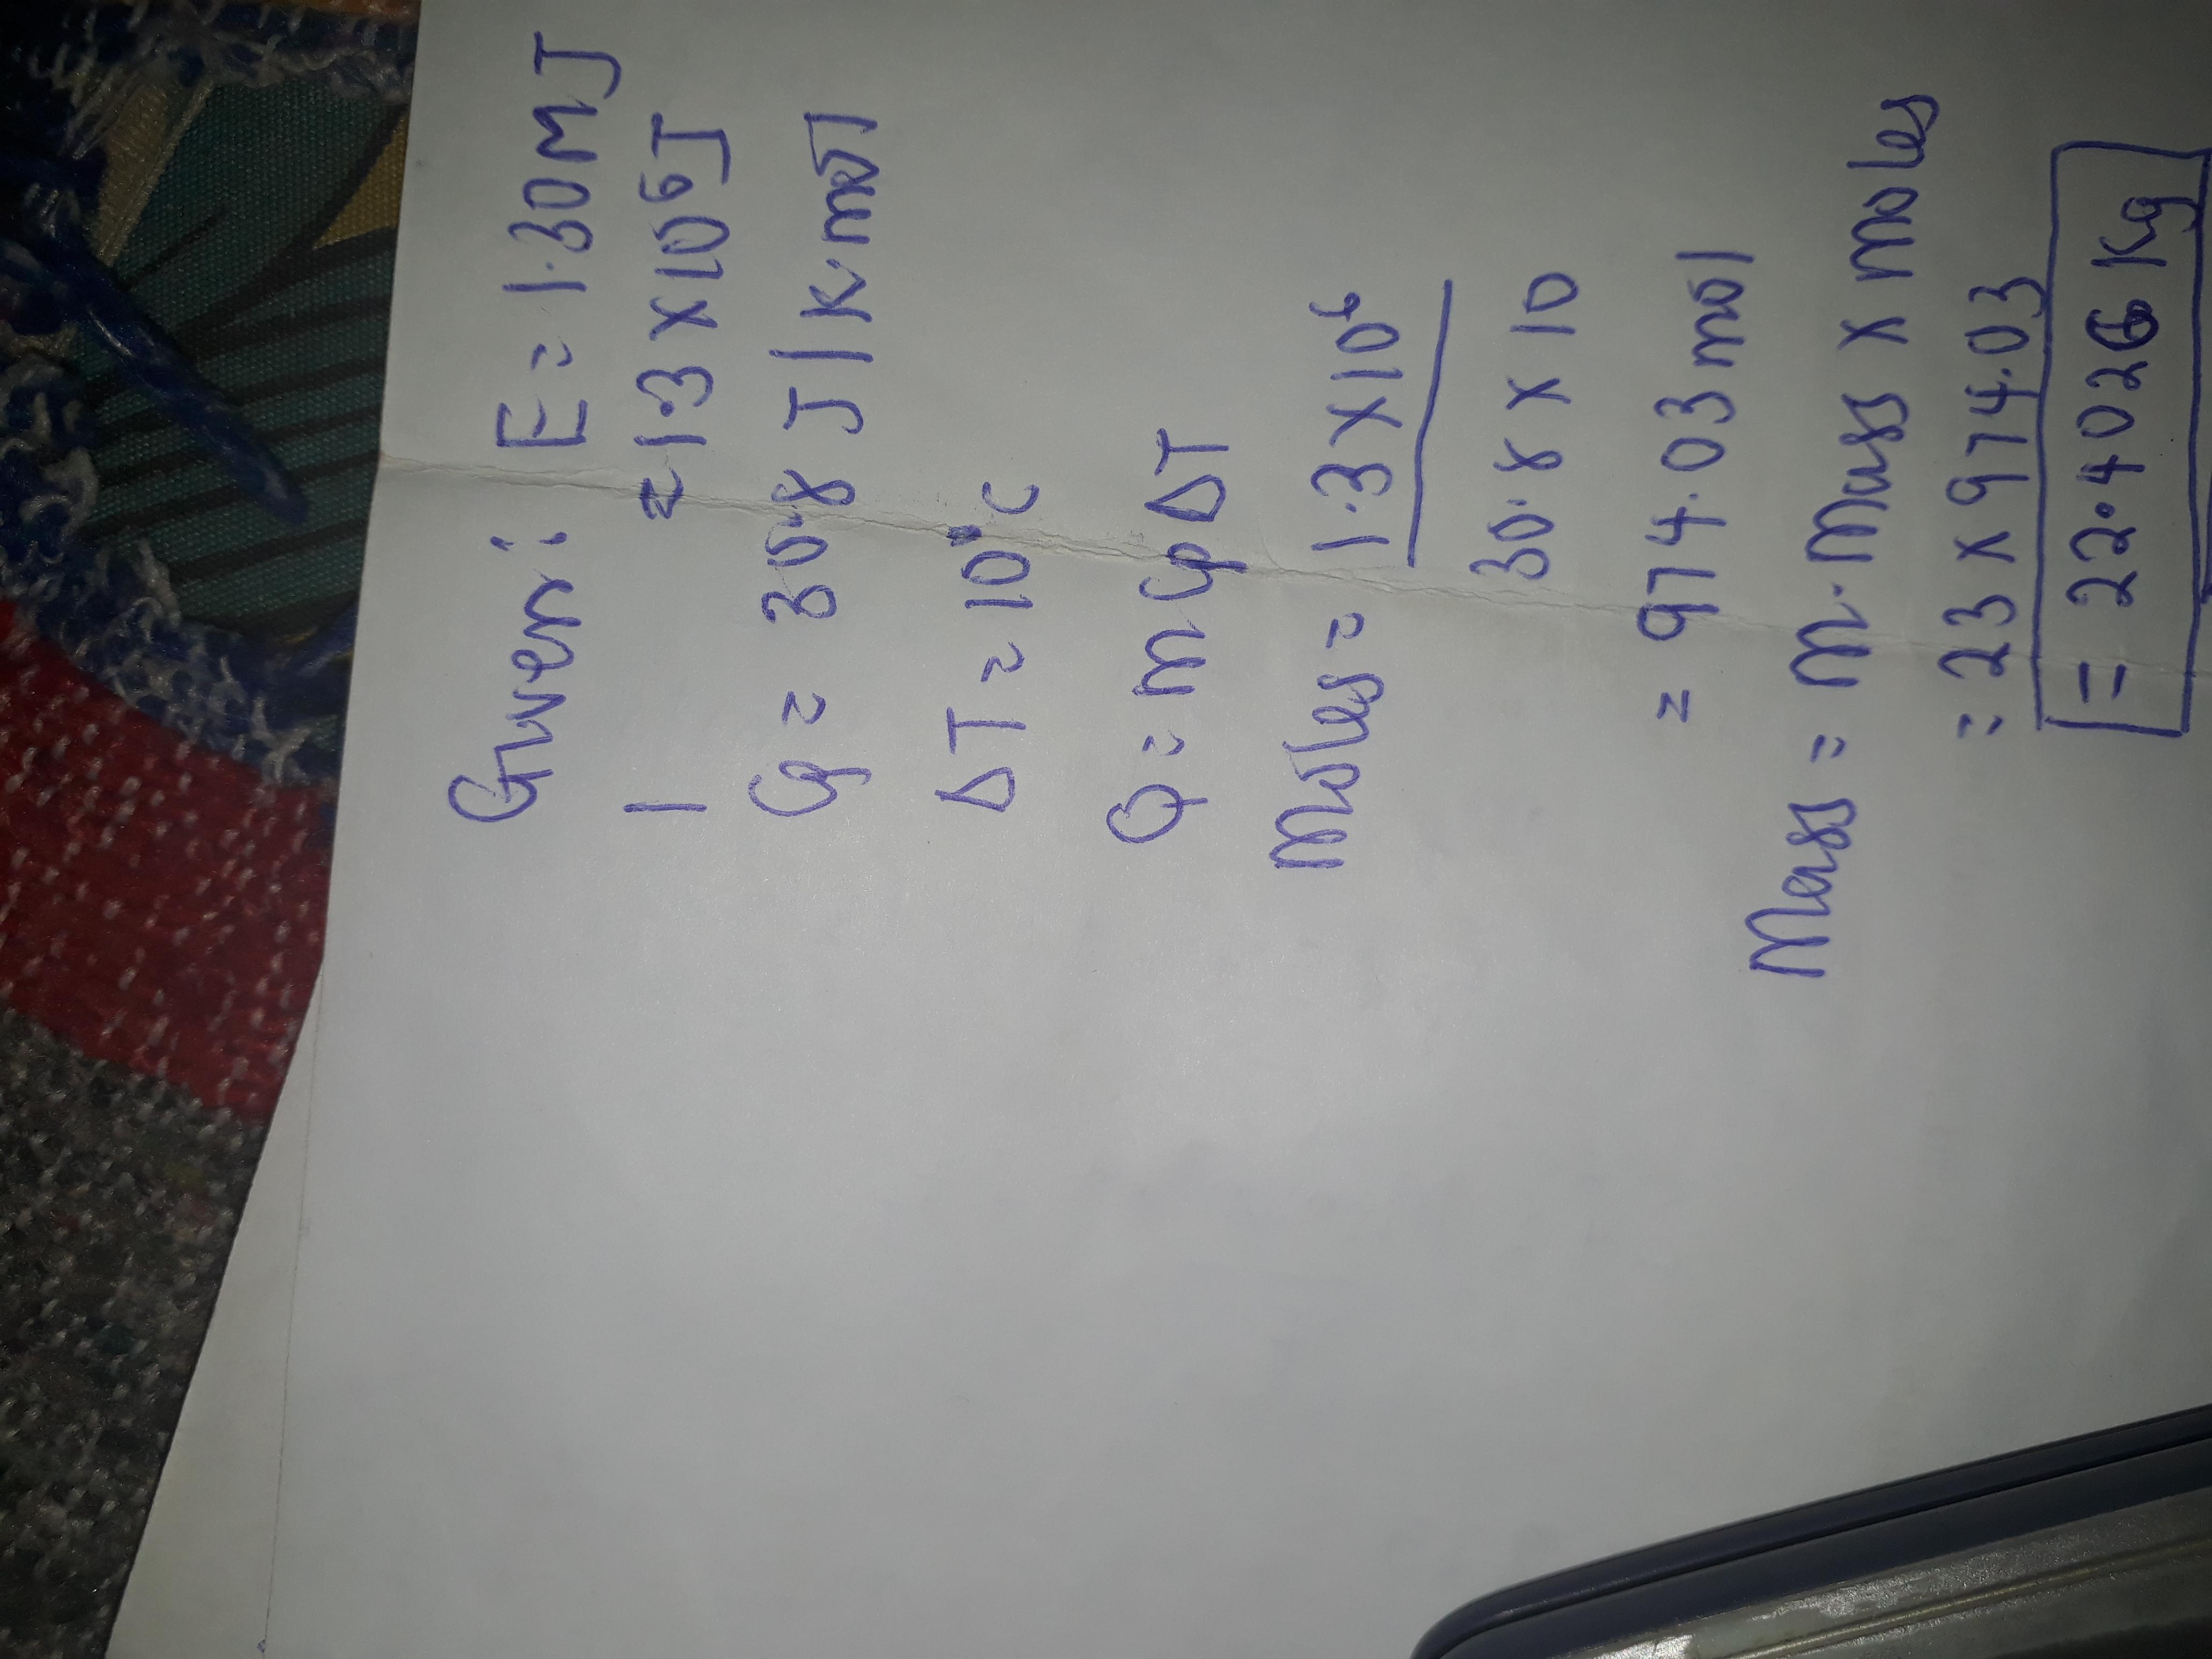 Given: E = 1.30MJ
= 1.3 X 10⁶J
Cp = 30.8 J/K mol
ΔT = 10°C
Q = m Cp ΔT
Moles = 1.3 X 10⁶
30.8 X 10
= 974.03 mol
Mass = M. Mass X moles
= 23 X 974.03
= 22.4026 Kg